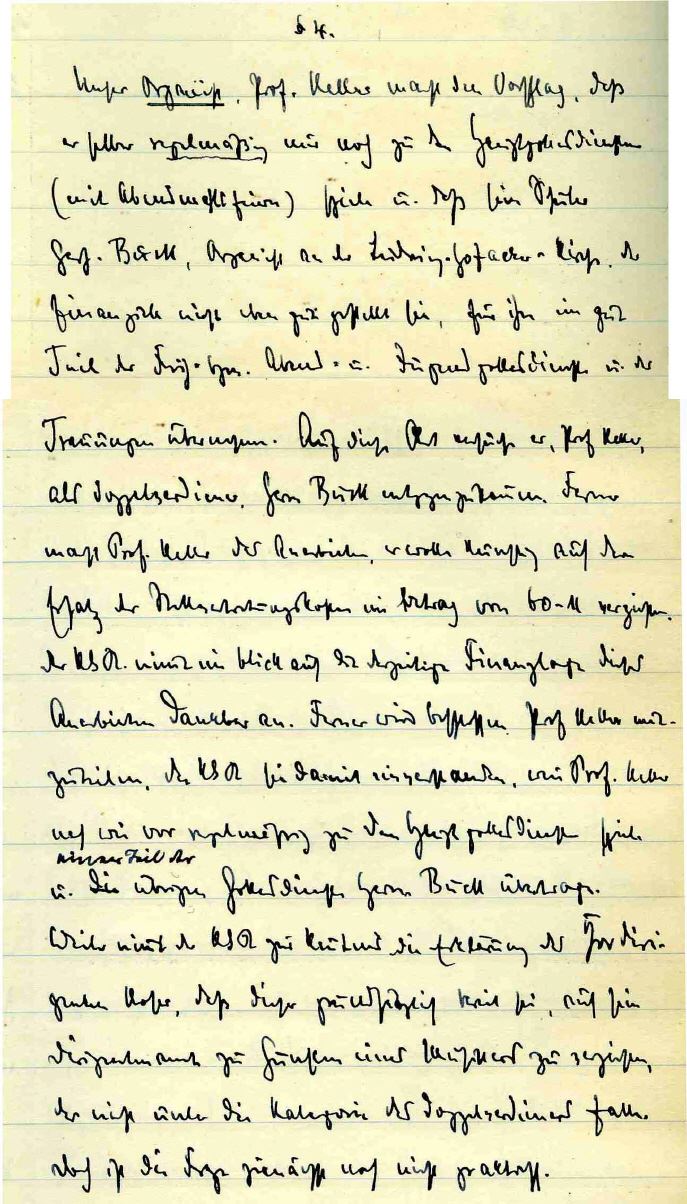 § 4.
Unser Organist, Prof. Keller macht den Vorschlag, daß
er selber regelmäßig nur noch zu den Hauptgottesdiensten
(mit Abendmahlsfeiern) spiele u. daß sein Schüler
Herr Bürck, Organist an der Ludwig-Hofacker-Kirche, der
finanziell nicht eben gut gestellt sei, für ihn ein gut
Teil der Früh- bzw. Abend- u. Jugendgottesdienste u. der
Trauungen übernehme. Auf diese Art versuche er, Prof Keller,
als Doppelverdiener, Herrn Bürck entgegenzukommen. Ferner
macht Prof. Keller das Anerbieten, er wolle künftig auf den
Ersatz der Stellvertretungskosten im Betrag von 60-M verzichten.
Der KGR. nimt im Blick auf die derzeitige Finanzlage dieses
Anerbieten dankbar an. Ferner wird beschlossen Prof Keller mit-
zuteilen, der KGR sei damit einverstanden, wenn Prof. Keller
nach wie vor regelmässig zu den Hauptgottesdiensten spiele
einen Teil der
u. die übrigen Gottesdienste Herrn Bürck übertrage.
Weiter nimt der KGR zur Kentnis die Erklärung des Chordiri-
genten, daß dieser grundsätzlich bereit sei, auf sein
Dirigentenamt zu Gunsten eines Musikers zu verzichten,
der nicht unter die Kategorie des Doppelverdieners falle.
Doch ist die Frage zunächst noch nicht praktisch.